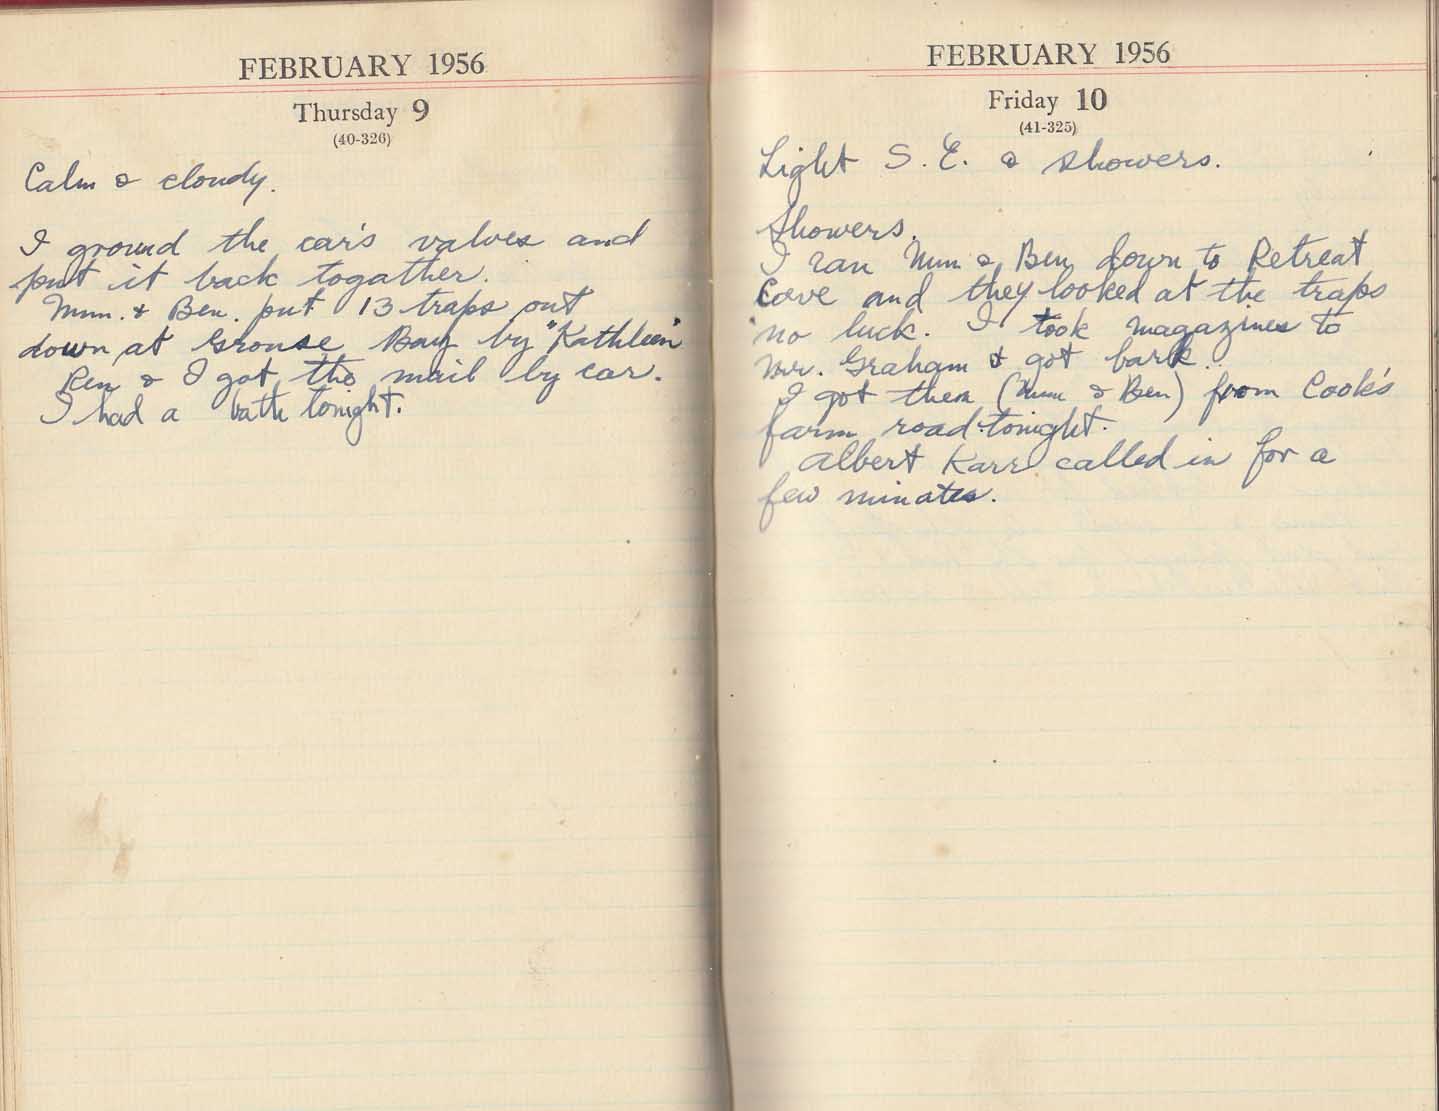 FEBRUARY 1956
Thursday 9
(40-326)
Calm & cloudy.
I ground the car's valves and
put it back togather.
Mum. & Ben. put 13 traps out
down at Grouse Bay by "Kathleen"
Ben & I got the mail by car.
I had a bath tonight.
FEBRUARY 1956
Friday 10
(41-325)
Light S. E. & showers.
Showers.
I ran Mum & Ben down to Retreat
Cove and they looked at the traps
no luck. I took magazines to
Mr. Graham & got bark.
I got them (Mum & Ben) from Cook's
farm road tonight.
Albert Karr called in for a
few minates.